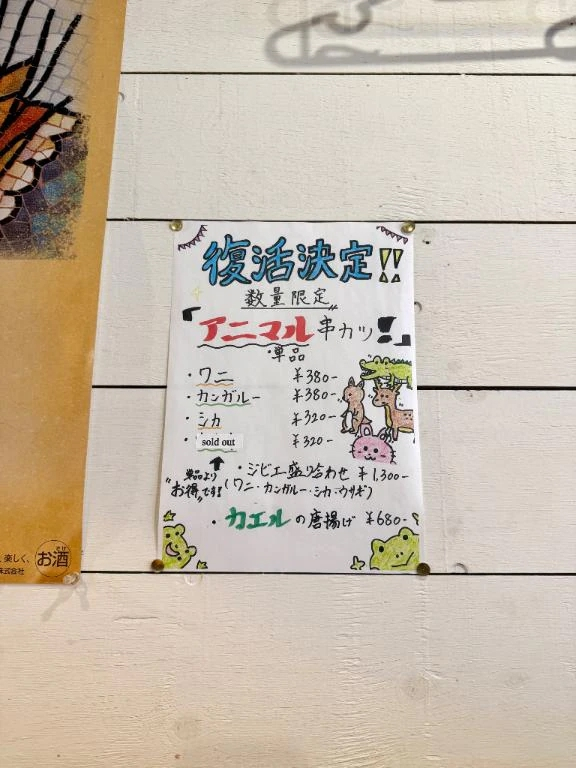 復活決定!!
数量限定
「アニマル串カツ!!」
・単品
・ワニ ¥380-
・カンガルー ¥380-
・シカ ¥320-
・sold out ¥320-
・ジビエ盛り合わせ ¥1,300-
(ワニ・カンガルー・シカ・ウサギ)
単品より
"お得"です!
・カエルの唐揚げ ¥680-
楽しく、お酒
さけ
株式会社